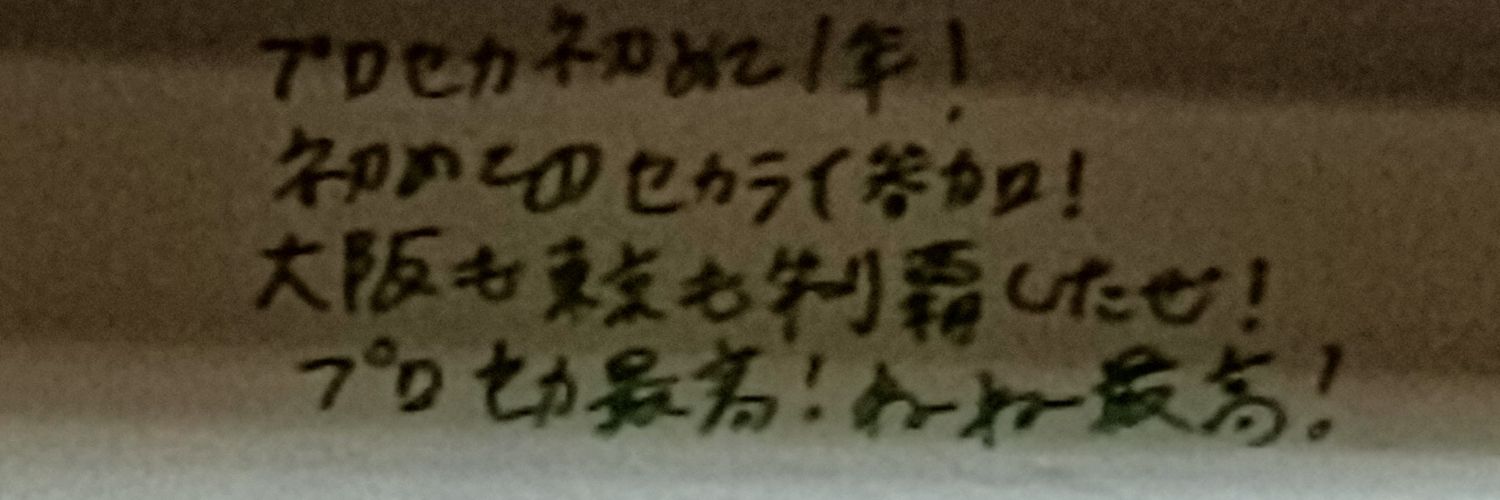 プロセカ初めて1年!
初めてのセカライ参加!
大阪も東京も制覇したぜ!
プロセカ最高!ねーねー最高!